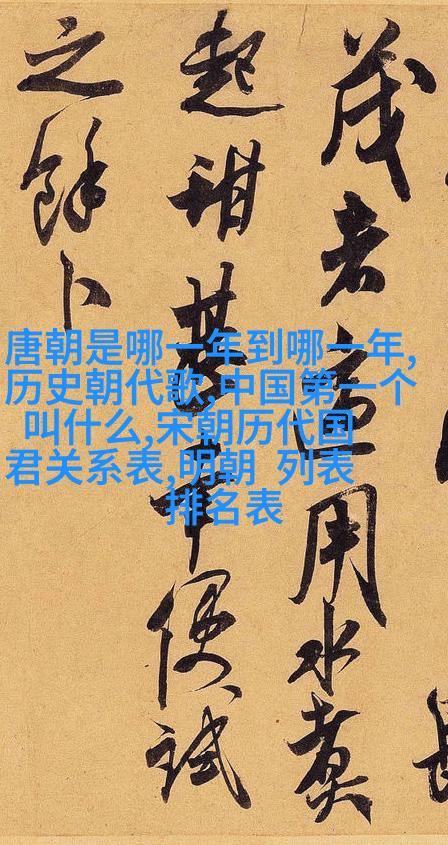 唐朝是哪一年到哪一年,
历史朝代歌,中国第一个
叫什么,宋朝历代国
君关系表,明朝 列表
排名表
茂者用水煮
起甜甚下便試
之餘卜